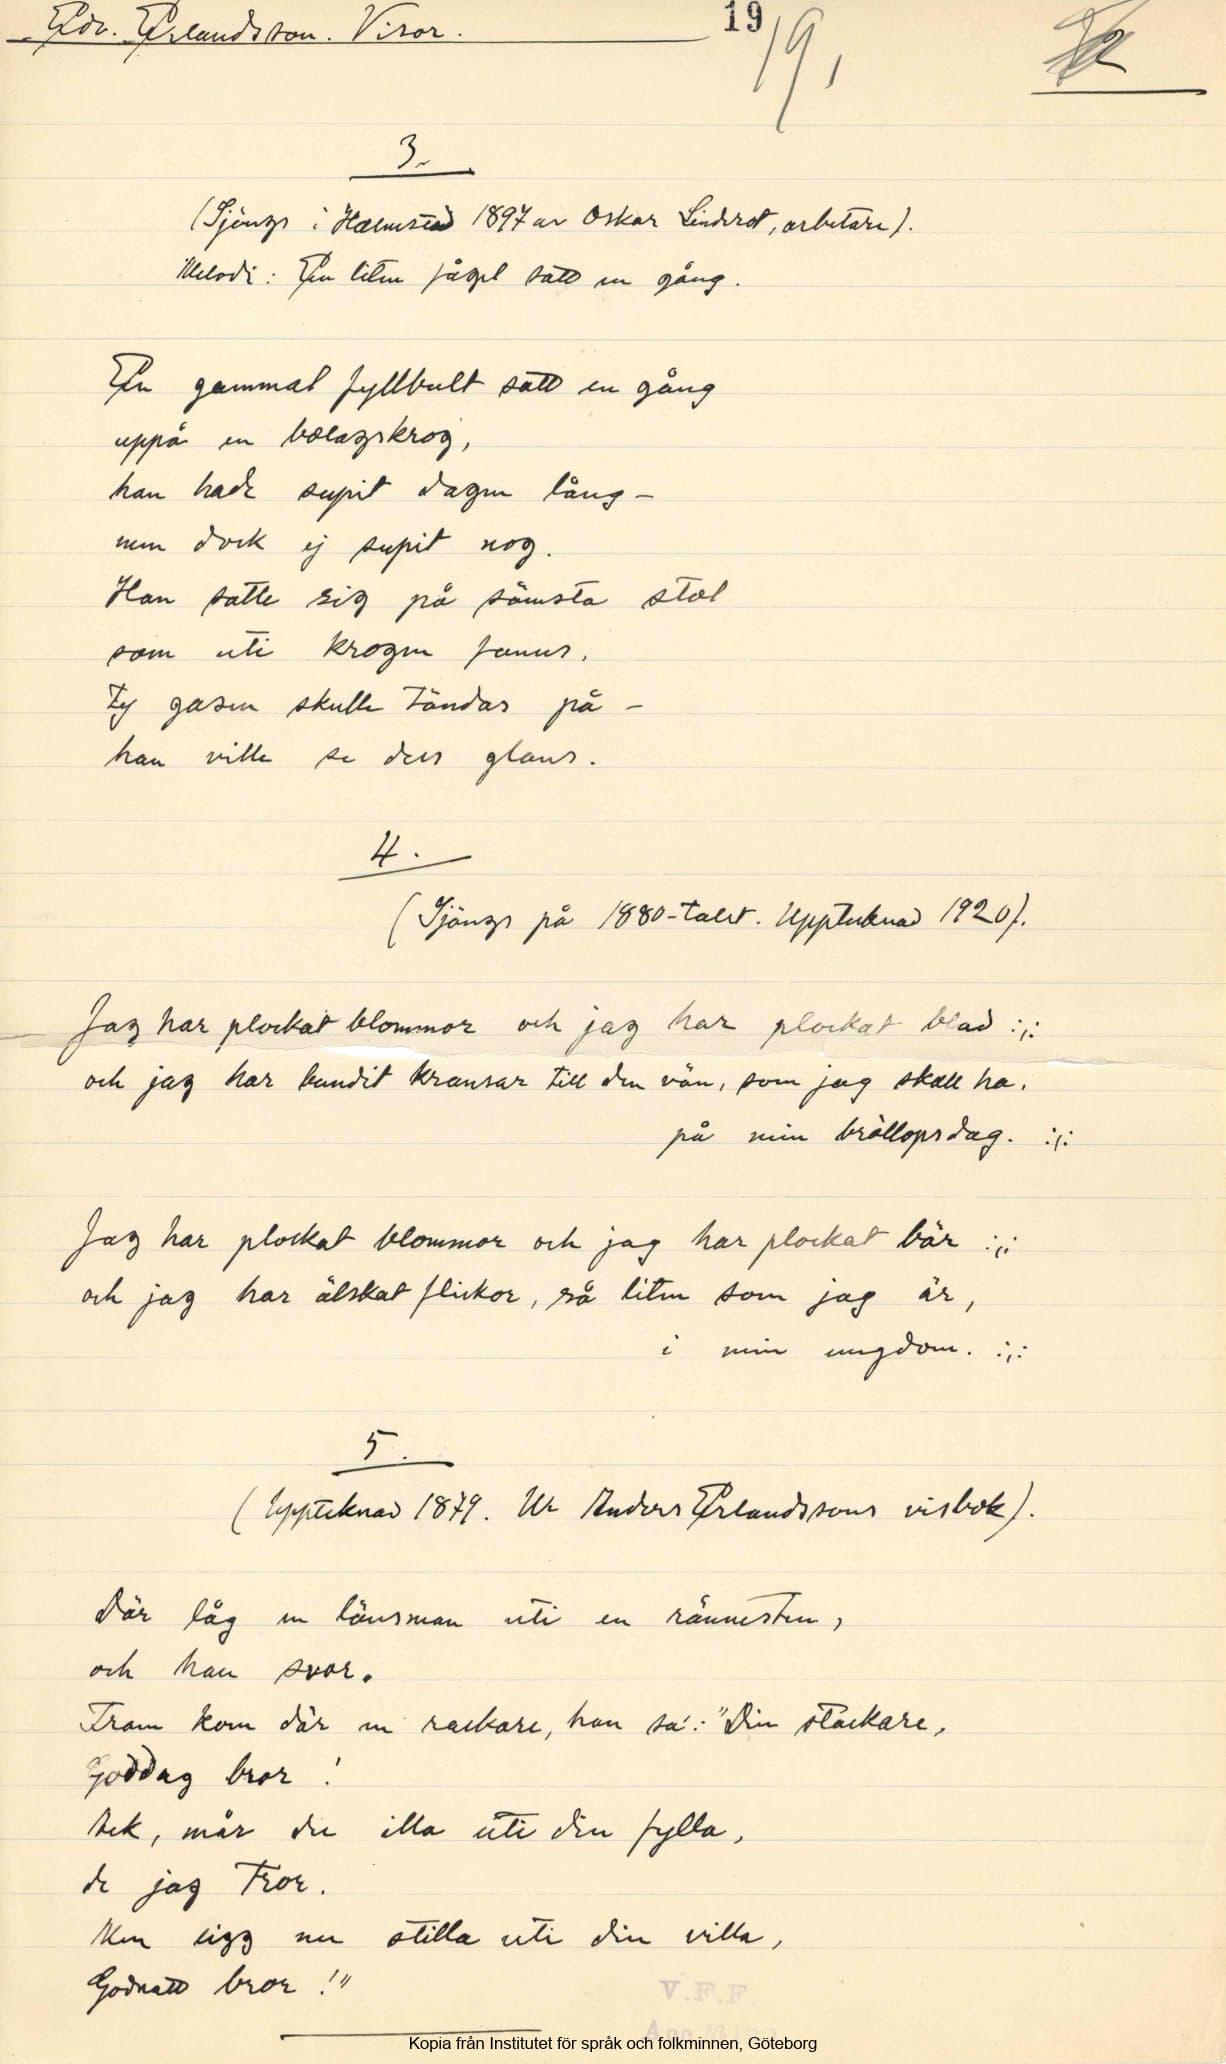 Edv. Erlandsson. Visor.
19
19,
3.
(Sjöngs i Halmstad 1897 av Oskar Linderot, arbetare).
Melodi: En liten fågel satt en gång.
En gammal fyllbult satt en gång
uppå en bolagskrog,
han hade supit dagen lång –
men dock ej supit nog.
Han satte sig på sämsta stol
som uti krogen fanns,
ty gasen skulle tändas på –
han ville se dess glans.
4.
(Sjöngs på 1880-talet. Upptecknad 1920).
Jag har plockat blommor och jag har plockat blad :,:
och jag har bundit kransar till den vän, som jag skall ha,
på min bröllopsdag. :,:
Jag har plockat blommor och jag har plockat bär :,:
och jag har älskat flickor, så liten som jag är,
i min ungdom. :,:
5.
(Upptecknad 1879. Ur Anders Erlandssons visbok).
Där låg en länsman uti en rännesten,
och han svor.
Fram kom där en rackare, han sa': "Din stackare,
Goddag bror!
Ack, mår du illa uti din fylla,
de jag tror.
Men ligg nu stilla uti din villa,
Godnatt bror!"
V.F.F.
Kopia från Institutet för språk och folkminnen, Göteborg